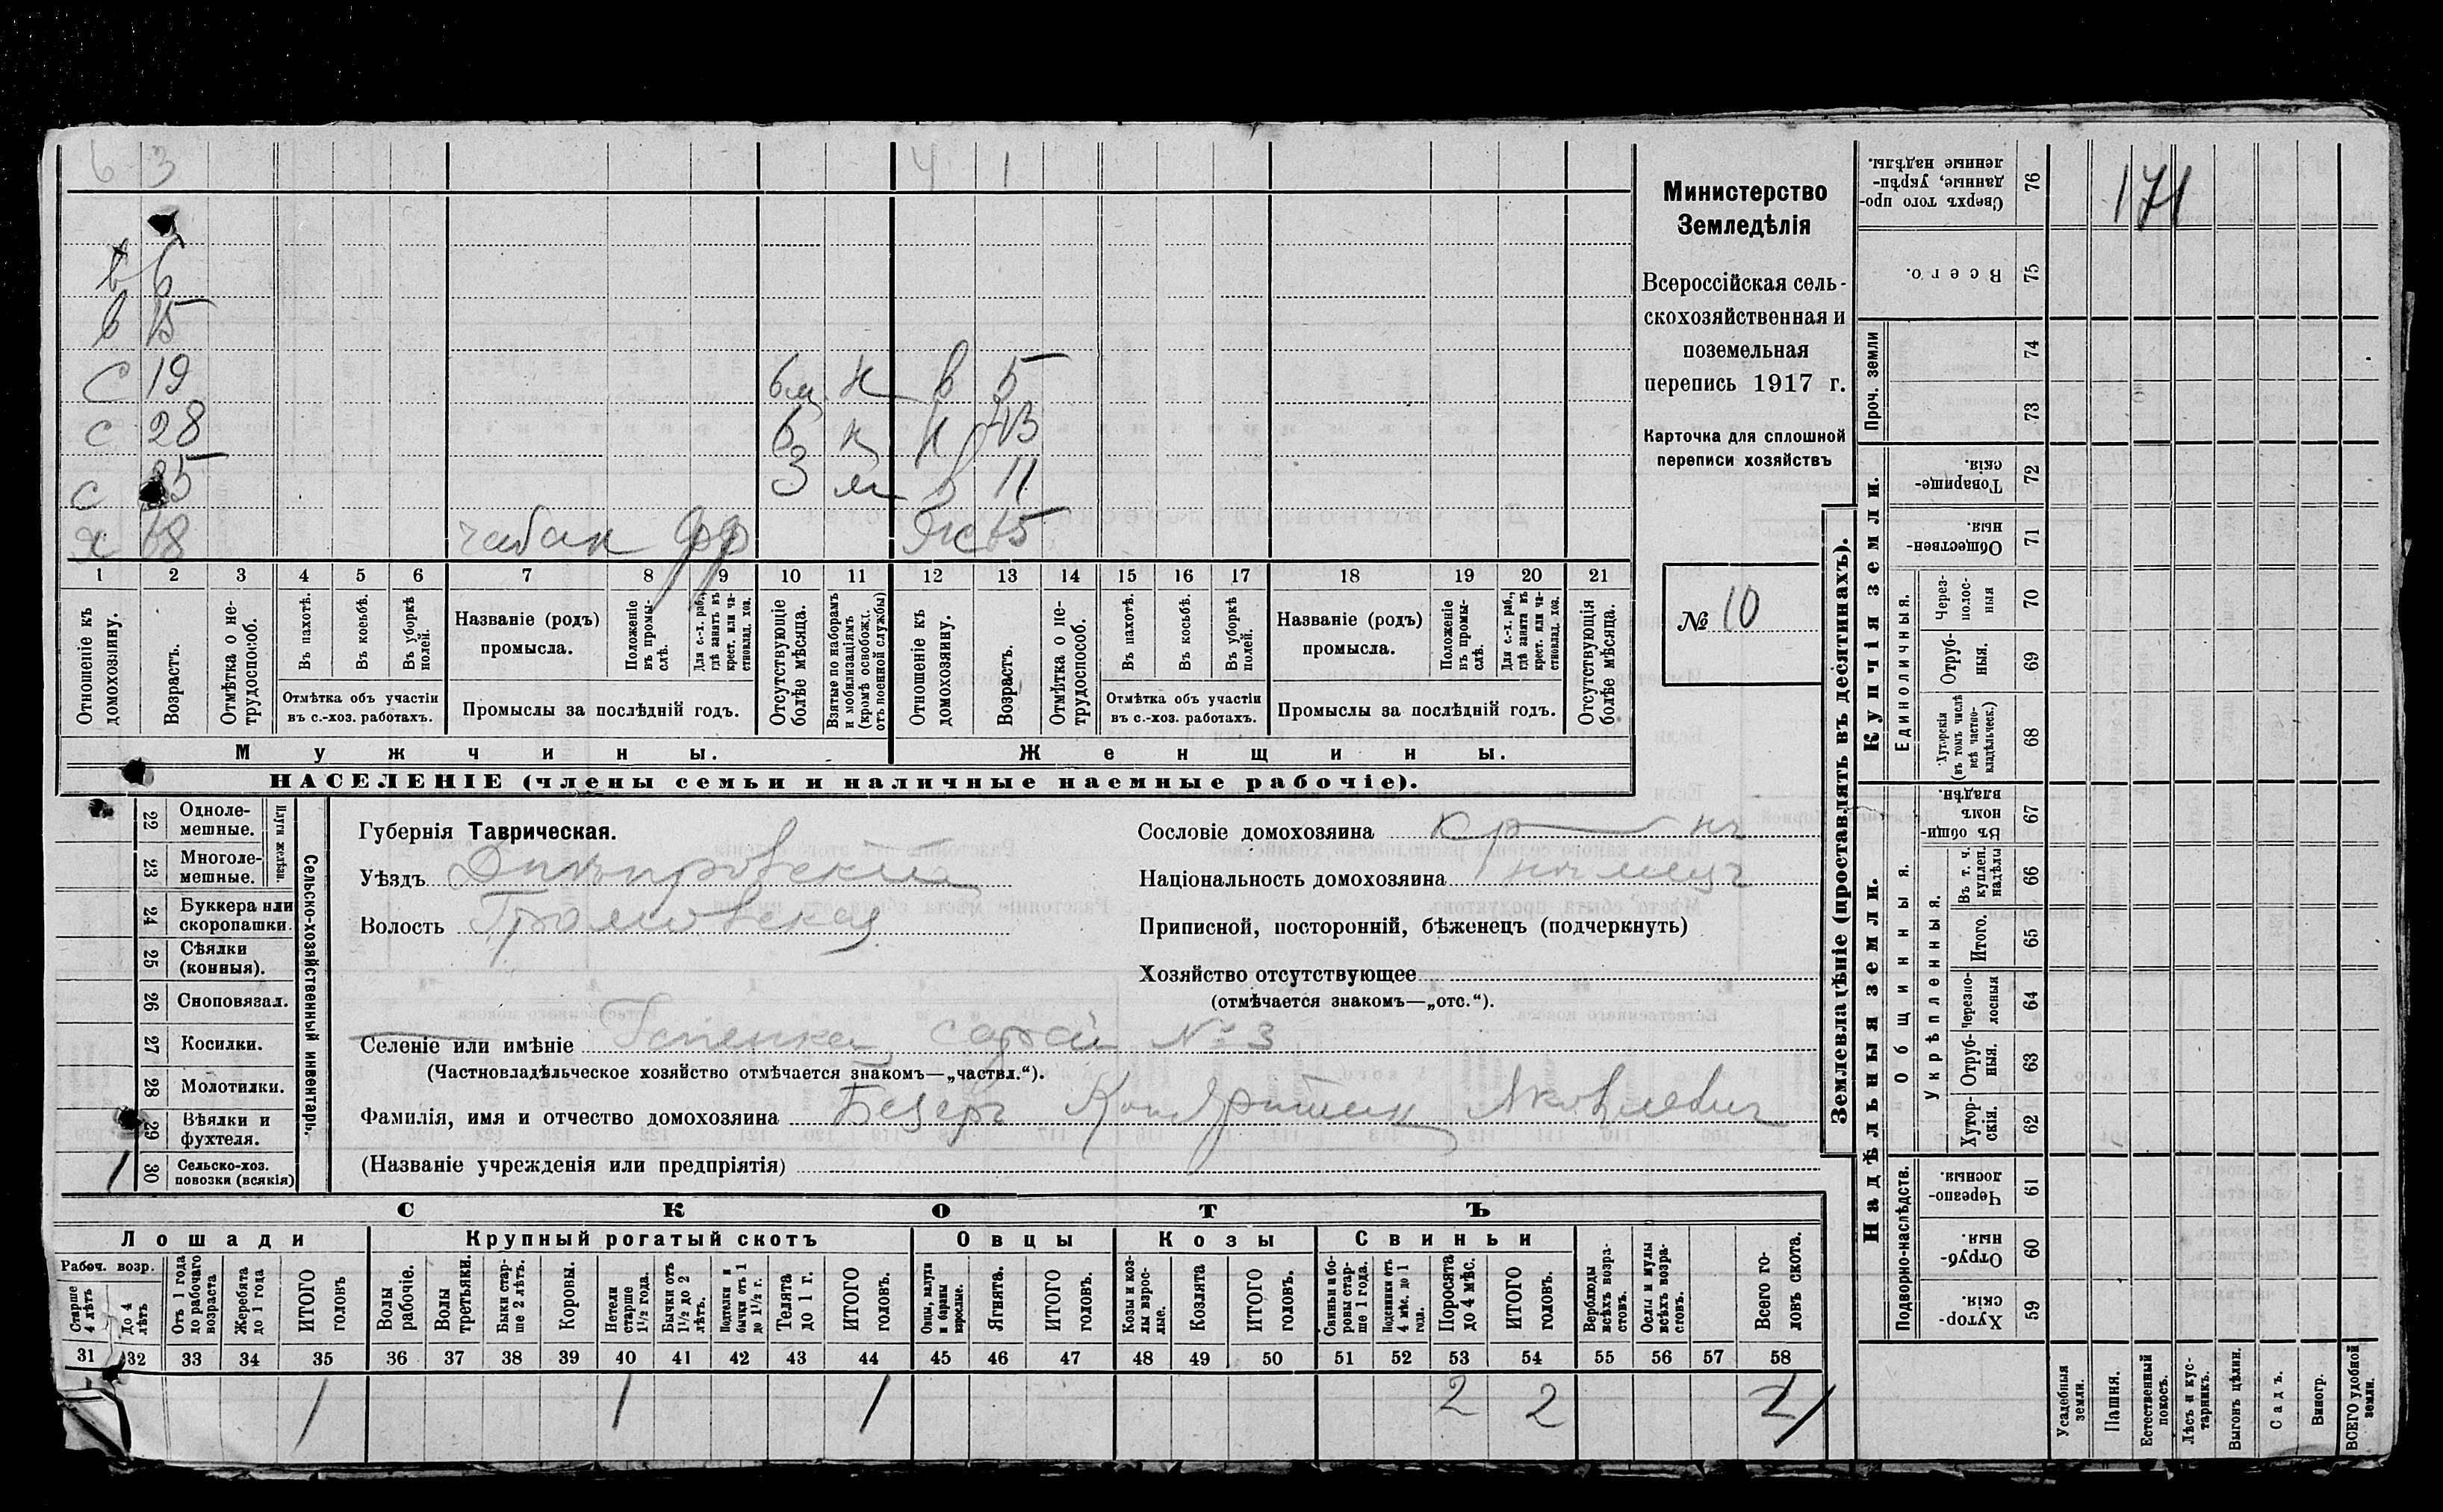 6 3 4 1
6
в 15
с 19 в 5
с 28 43
с 11
чабан
1 2 3 4 5 6 7 8 9 10 11 12 13 14 15 16 17 18 19 20 21
Отношеніе къ домохозяину.
Возрастъ.
Отмѣтка о не-трудоспособ.
Въ пахотѣ.
Въ косьбѣ.
Въ уборкѣ полей.
Отмѣтка объ участіи
въ с.-хоз. работахъ.
Названіе (родъ)
промысла.
Положеніе въ промы-слѣ.
Для с.-х. раб., гдѣ занятъ въ крест. или ча-стновлад. хоз.
Промыслы за послѣдній годъ.
Отсутствующіе болѣе мѣсяца.
Взятые по наборамъ и мобилизаціямъ (кромѣ освобожд. отъ военной службы)
Отношеніе къ домохозяину.
Возрастъ.
Отмѣтка о не-трудоспособ.
Въ пахотѣ.
Въ косьбѣ.
Въ уборкѣ полей.
Отмѣтка объ участіи
въ с.-хоз. работахъ.
Названіе (родъ)
промысла.
Положеніе въ промы-слѣ.
Для с.-х. раб., гдѣ занята въ крест. или ча-стновлад. хоз.
Промыслы за послѣдній годъ.
Отсутствующія болѣе мѣсяца.
Мужчины. Женщины.
НАСЕЛЕНІЕ (члены семьи и наличные наемные рабочіе).
Министерство
Земледѣлія
Всероссійская сель-
скохозяйственная и
поземельная
перепись 1917 г.
Карточка для сплошной
переписи хозяйствъ
№ 10
22 Одноле-мешные.
23 Многоле-мешные.
Плуги желѣзн.
24 Буккера или скоропашки.
25 Сѣялки (конныя).
26 Сноповязал.
27 Косилки.
28 Молотилки.
29 Вѣялки и фухтеля.
1 30 Сельско-хоз. повозки (всякія)
Сельско-хозяйственный инвентарь.
Губернія Таврическая.
Уѣздъ Днѣпровскій
Волость Громовская
Селеніе или имѣніе Сарай № 3
(Частновладѣльческое хозяйство отмѣчается знакомъ—„частвл.“).
Фамилія, имя и отчество домохозяина Яковлевич
(Названіе учрежденія или предпріятія)
Сословіе домохозяина
Національность домохозяина нѣмец
Приписной, посторонній, бѣженецъ (подчеркнуть)
Хозяйство отсутствующее
(отмѣчается знакомъ—„отс.“).
СКОТЪ
Лошади Крупный рогатый скотъ Овцы Козы Свиньи
Рабоч. возр.
Старше 4 лѣтъ
До 4 лѣтъ
Отъ 1 года до рабочаго возраста
Жеребята до 1 года
ИТОГО головъ
Волы рабочіе.
Волы третьяки.
Быки стар-ше 2 лѣтъ.
Коровы.
Нетели старше 1½ года.
Бычки отъ 1½ до 2 лѣтъ.
Подтелки и бычки отъ 1 до 1½ г.
Телята до 1 г.
ИТОГО головъ.
Овцы, валухи и бараны взрослые.
Ягнята.
ИТОГО головъ.
Козы и коз-лы взрос-лые.
Козлята
ИТОГО головъ.
Свиньи и бо-ровы стар-ше 1 года.
Подсвинки отъ 4 мѣс. до 1 года.
Поросята до 4 мѣс.
ИТОГО головъ.
Верблюды всѣхъ возра-стовъ.
Ослы и мулы всѣхъ возра-стовъ.
Всего го-ловъ скота.
31 32 33 34 35 36 37 38 39 40 41 42 43 44 45 46 47 48 49 50 51 52 53 54 55 56 57 58
1 1 1 2 2
Землевладѣніе (проставлять въ десятинахъ).
Купчія земли.
Надѣльныя земли.
Сверхъ того про-данные, укрѣп-ленные надѣлы. 76
171
Всего. 75
Проч. земли 74 73
Товарище-скія. 72
Обществен-ныя. 71
Единоличныя.
Через-полос-ныя 70
Отруб-ныя. 69
Хуторскія (въ томъ числѣ всѣ частно-владѣльческ.) 68
Общинныя.
Въ общи-номъ владѣн. 67
Укрѣпленныя.
Въ т. ч. куплен. надѣлы 66
Итого. 65
Черезпо-лосныя 64
Отруб-ныя. 63
Хутор-скія. 62
Подворно-наслѣдств.
Черезпо-лосныя 61
Отруб-ныя. 60
Хутор-скія. 59
Усадебныя земли.
Пашня.
Естественный покосъ.
Лѣсъ и кус-тарникъ.
Выгонъ цѣлин.
Садъ.
Виногр.
ВСЕГО удобной земли.